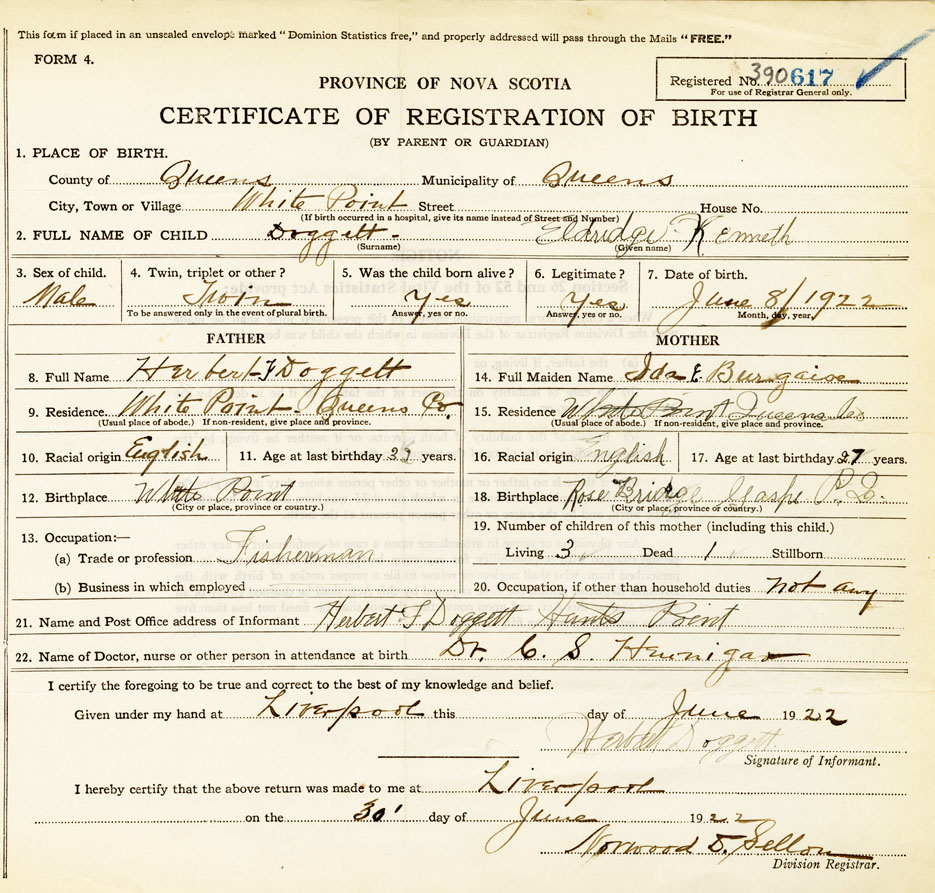 This form if placed in an unsealed envelope marked "Dominion Statistics free," and properly addressed will pass through the Mails "FREE."
FORM 4.
Registered No. 390617
For use of Registrar General only.
PROVINCE OF NOVA SCOTIA
CERTIFICATE OF REGISTRATION OF BIRTH
(BY PARENT OR GUARDIAN)
1. PLACE OF BIRTH.
County of Queens Municipality of Queens
City, Town or Village White Point Street House No.
(If birth occurred in a hospital, give its name instead of Street and Number)
2. FULL NAME OF CHILD Doggett - Eldridge Kenneth
(Surname) (Given name)
3. Sex of child. 4. Twin, triplet or other? 5. Was the child born alive? 6. Legitimate? 7. Date of birth.
Male Twin Yes Yes June 8/1922
To be answered only in the event of plural birth. Answer, yes or no. Answer, yes or no. Month, day, year,
FATHER MOTHER
8. Full Name Herbert F Doggett 14. Full Maiden Name Ida E
9. Residence. White Point - Queens Co. 15. Residence White Point Queens Co
(Usual place of abode.) If non-resident, give place and province. (Usual place of abode.) If non-resident, give place and province.
10. Racial origin English 11. Age at last birthday years. 16. Racial origin English 17. Age at last birthday 27 years.
12. Birthplace White Point 18. Birthplace Rose Bridge Gaspe P. Q.
(City or place, province or country.) (City or place, province or country.)
13. Occupation:— 19. Number of children of this mother (including this child.)
(a) Trade or profession Fisherman Living 3 Dead 1 Stillborn
(b) Business in which employed 20. Occupation, if other than household duties not any
21. Name and Post Office address of Informant Herbert F Doggett Hunts Point
22. Name of Doctor, nurse or other person in attendance at birth Dr. C. S. Hennigar
I certify the foregoing to be true and correct to the best of my knowledge and belief.
Given under my hand at Liverpool this day of June 1922
Herbert Doggett
Signature of Informant.
I hereby certify that the above return was made to me at Liverpool
on the 30' day of June 1922
Norwood D. Sellon
Division Registrar.